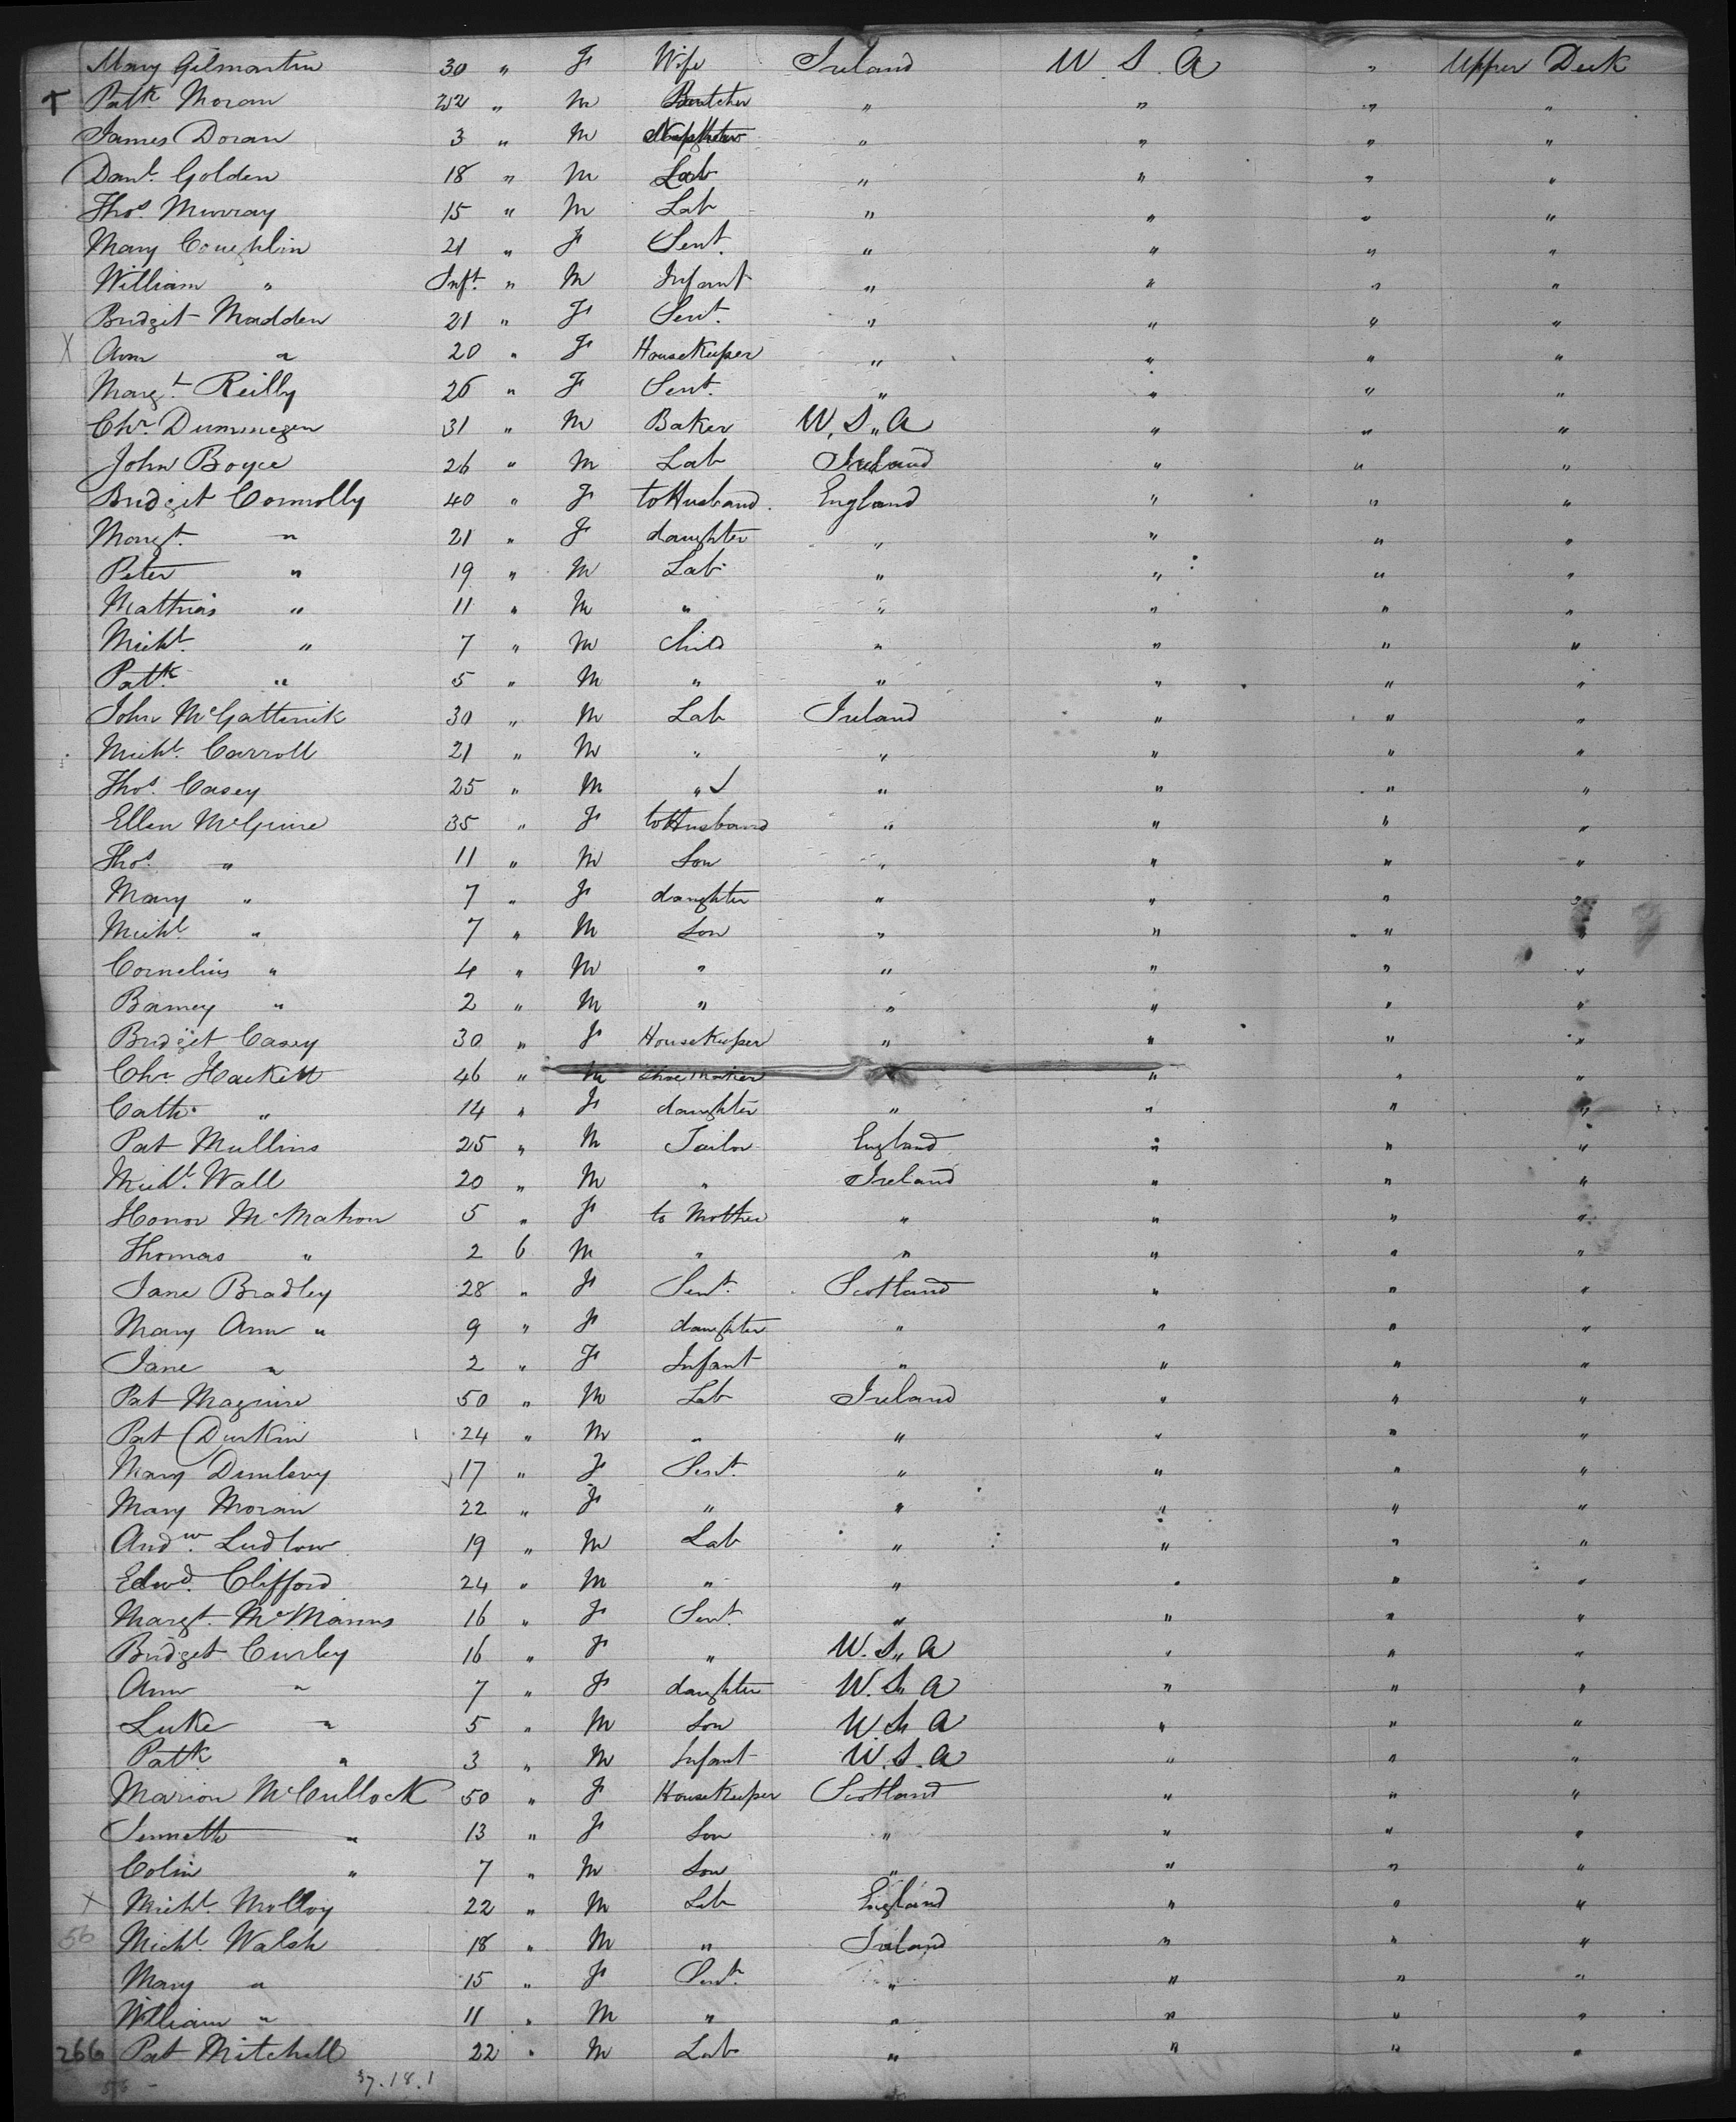 Mary Gilmartin 30 " F Wife Ireland U S A " Upper Deck
Patk Moran 22 " M Butcher " " " "
James Doran 3 " M " " " "
Danl. Golden 18 " M Lab " " " "
Thos. Murray 15 " M Lab " " " "
Mary Coughlin 21 " F Sert. " " " "
William " Inft. " M Infant " " " "
Bridget Madden 21 " F Sert. " " " "
X Ann " 20 " F HouseKeeper " " " "
Margt. Reilly 26 " F Sert. " " " "
Chr. Dunnegen 31 " M Baker U.S.A " " "
John Boyce 26 " M Lab Ireland " " "
Bridget Connolly 40 " F to Husband England " " "
Margt. " 21 " F daughter " " " "
Peter " 19 " M Lab " " " "
Mathias " 11 " M " " " " "
Michl. " 7 " M Child " " " "
Patk " 5 " M " " " " "
John McGatterick 30 " M Lab Ireland " " "
Michl. Carroll 21 " M " " " " "
Thos. Casey 25 " M " " " " "
Ellen McGuire 35 " F to Husband " " " "
Thos. " 11 " M Son " " " "
Mary " 7 " F daughter " " " "
Michl. " 7 " M Son " " " "
Cornelius " 4 " M " " " " "
Barney " 2 " M " " " " "
Bridget Casey 30 " F HouseKeeper " " " "
Chr. Hackett 46 " M Shoe Maker " " "
Cath. " 14 " F daughter " " " "
Pat Mullins 25 " M Tailor England " " "
Michl. Wall 20 " M " Ireland " " "
Honor McMahon 5 " F to Mother " " " "
Thomas " 2 6 M " " " " "
Jane Bradley 28 " F Sert. Scotland " " "
Mary Ann " 9 " F daughter " " " "
Jane " 2 " F Infant " " " "
Pat Maguire 50 " M Lab Ireland " " "
Pat Durkin 24 " M " " " " "
Mary Dunlevy 17 " F Sert. " " " "
Mary Moran 22 " F " " " " "
Andw. Ludlow 19 " M Lab " " " "
Edwd. Clifford 24 " M " " " " "
Margt. McManus 16 " F Sert. " " " "
Bridget Curley 16 " F " U.S.A " " "
Ann " 7 " F daughter U.S.A " " "
Luke " 5 " M Son U.S.A " " "
Patk " 3 " M Infant U.S.A " " "
Marion McCullock 50 " F HouseKeeper Scotland " " "
Jennett " 13 " F Son " " " "
Colin " 7 " M Son " " " "
X Michl. Molloy 22 " M Lab England " " "
56 Michl. Walsh 18 " M " Ireland " " "
Mary " 15 " F Sert. " " " "
William " 11 " M " " " " "
266 Pat Mitchell 22 " M Lab " " " "
37.18.1